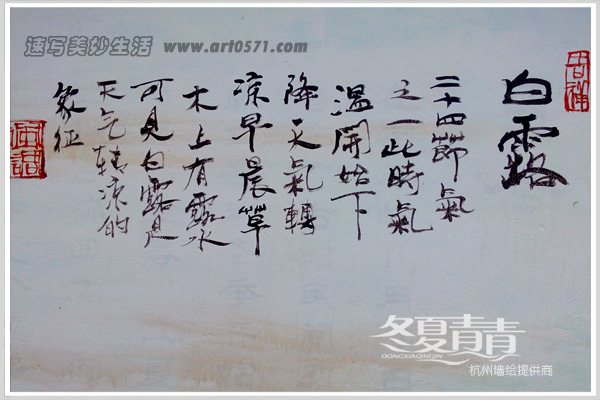 速写美妙生活 www.art0571.com
白露
二十四節氣
之一此時氣
溫開始下
降天氣轉
涼早晨草
木上有露水
可見白露是
天气转凉的
象征
冬夏青青
DONGXIAQINGQIN
杭州墙绘提供商